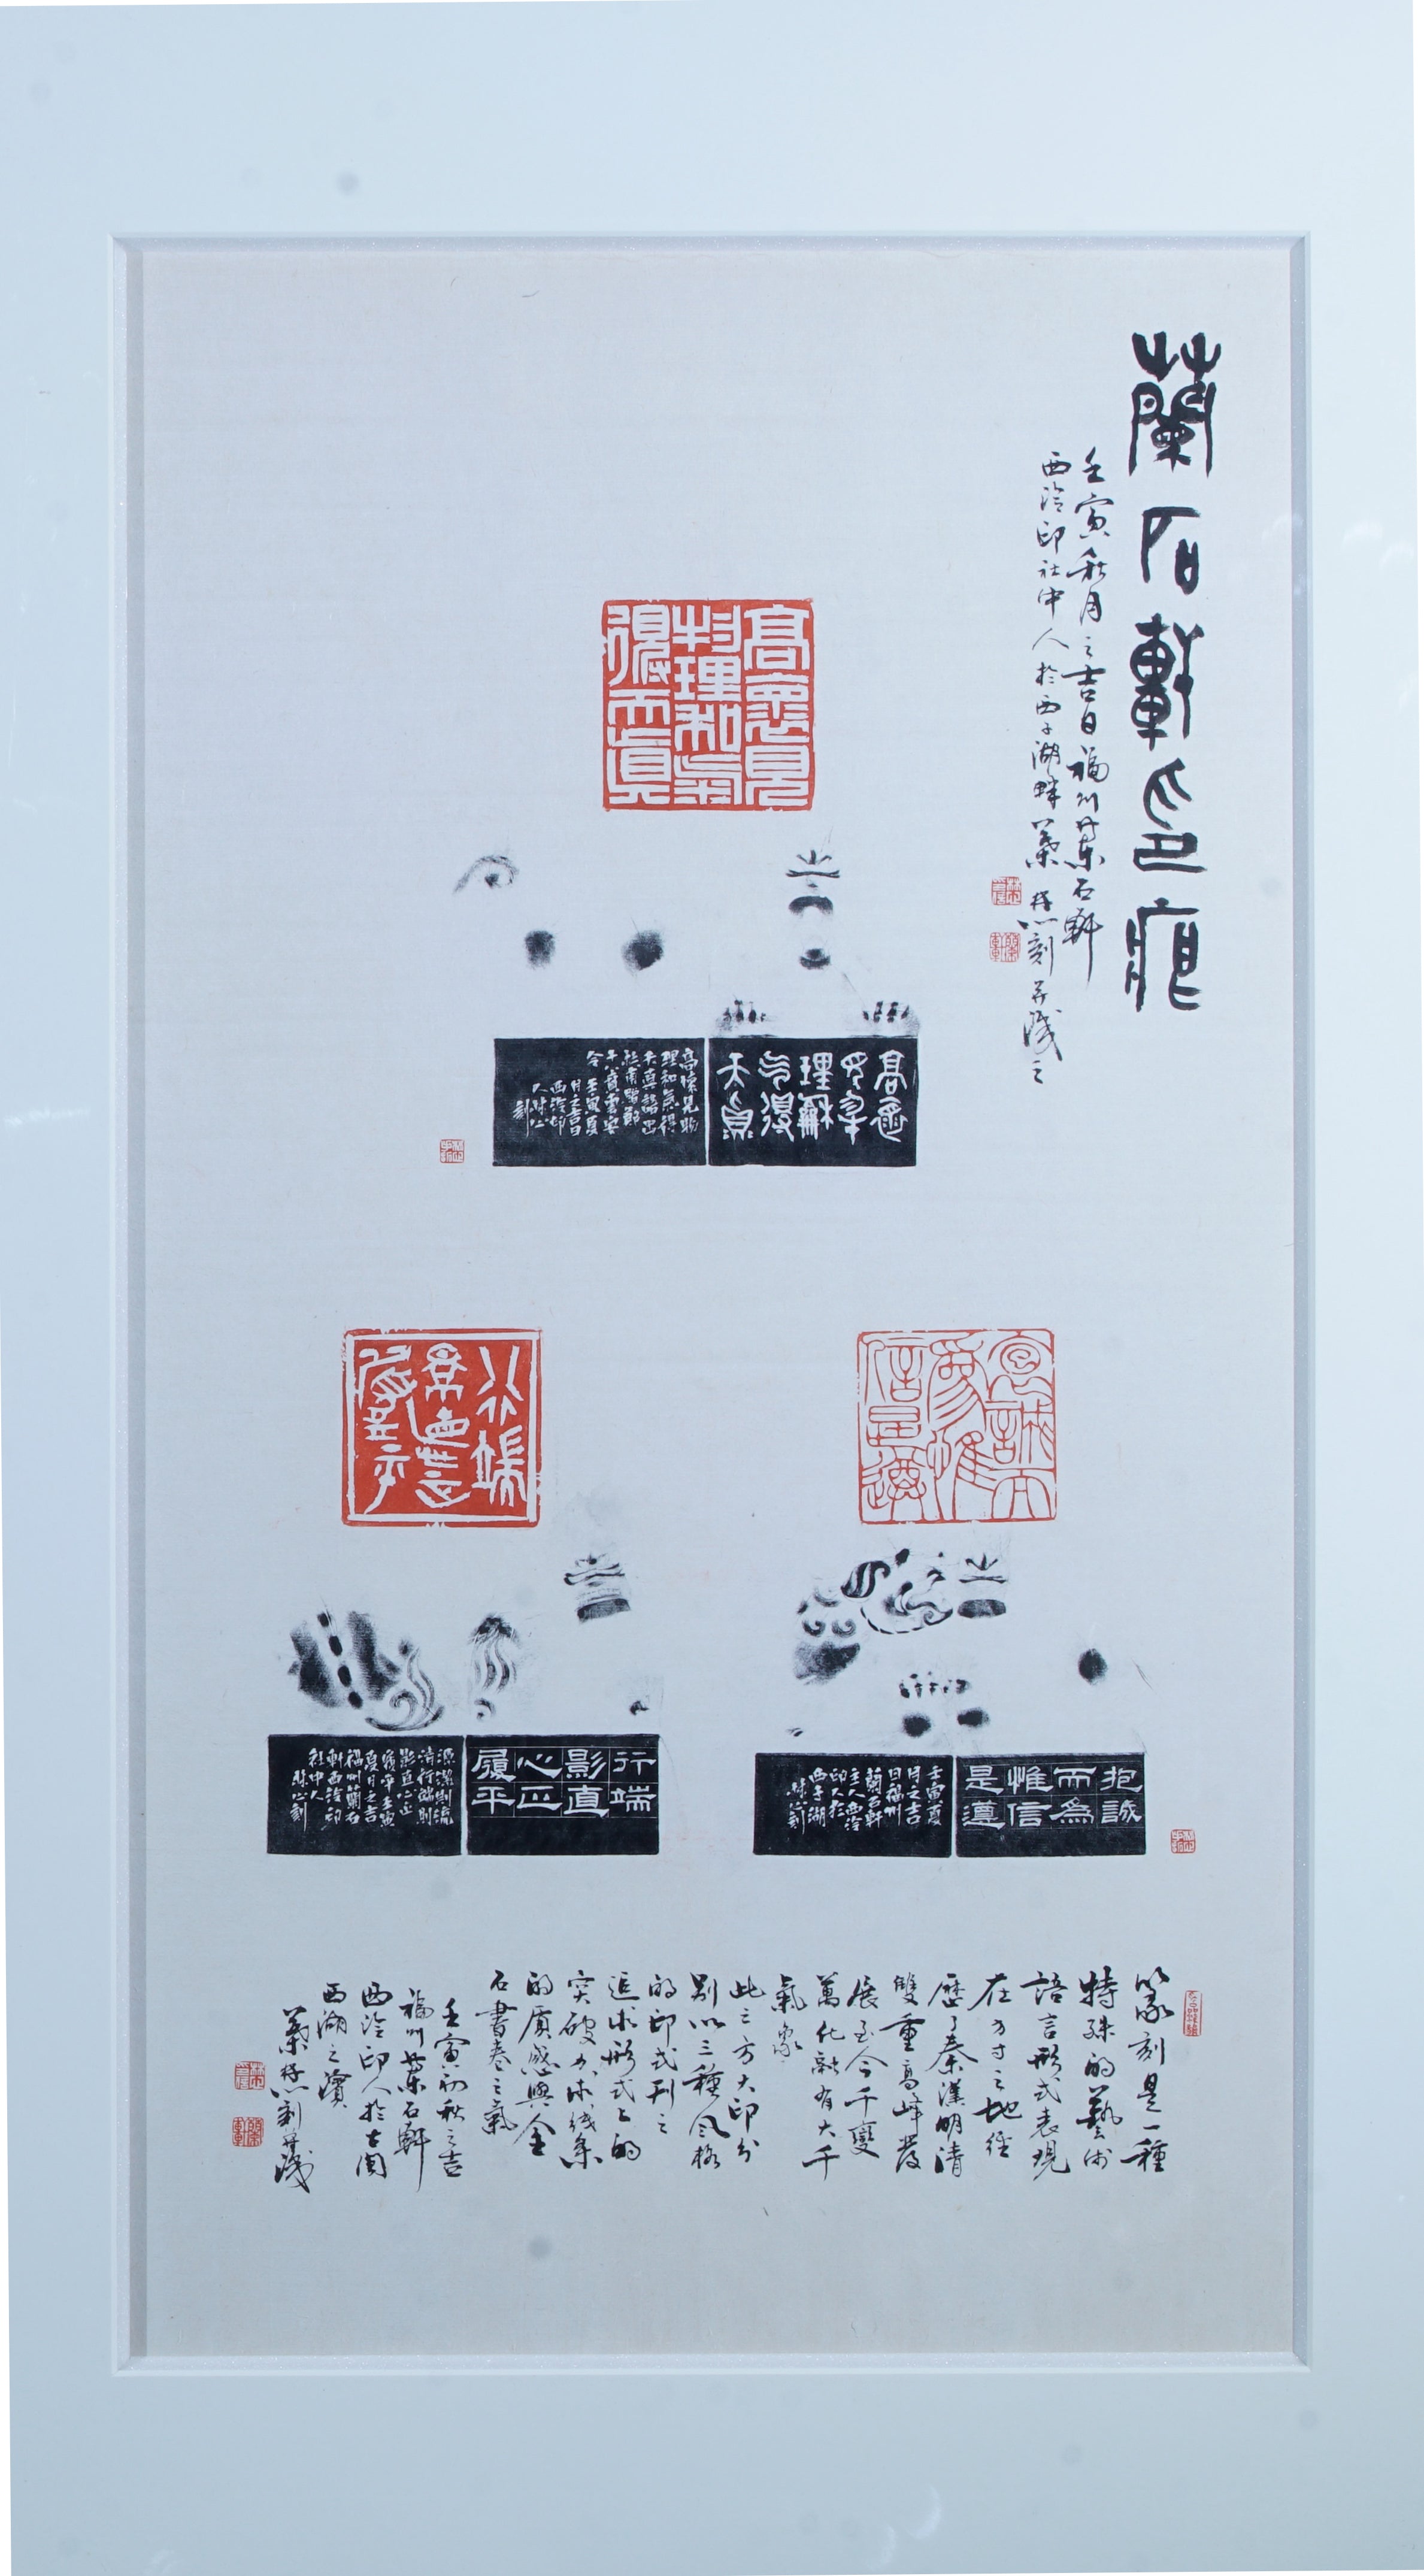 蘭石軒印痕
壬寅秋月之吉日福州蘭石軒
西泠印社中人於西子湖畔 刻并識之
高懷見
物理和氣
得天真
高懷
見物
理和
气得
天真
高懷見物
理和氣得
天真語出
令壬寅夏
月之吉日
西泠印
人 刻
抱誠而
為惟
信是遵
行端
影直心正
履平
抱誠
而為
惟信
是遵
壬寅夏
月之吉
日福州
蘭石軒
主人西泠
印人於
西子湖
刻
行端
影直
心正
履平
源潔則流
清行端則
影直心正
履平壬寅
夏月之吉
福州蘭石
軒西泠印
社中人
刻
篆刻是一種
特殊的藝術
語言形式表現
在方寸之地經
歷了秦漢明清
雙重高峰發
展至今千變
萬化融有大千
氣象
此三方大印分
別以三種風格
的印式刊之
追求形式上的
突破力求線條
的質感與金
石書卷之氣
壬寅初秋之吉
福州蘭石軒
西泠印人於
西湖之濱
刻并識